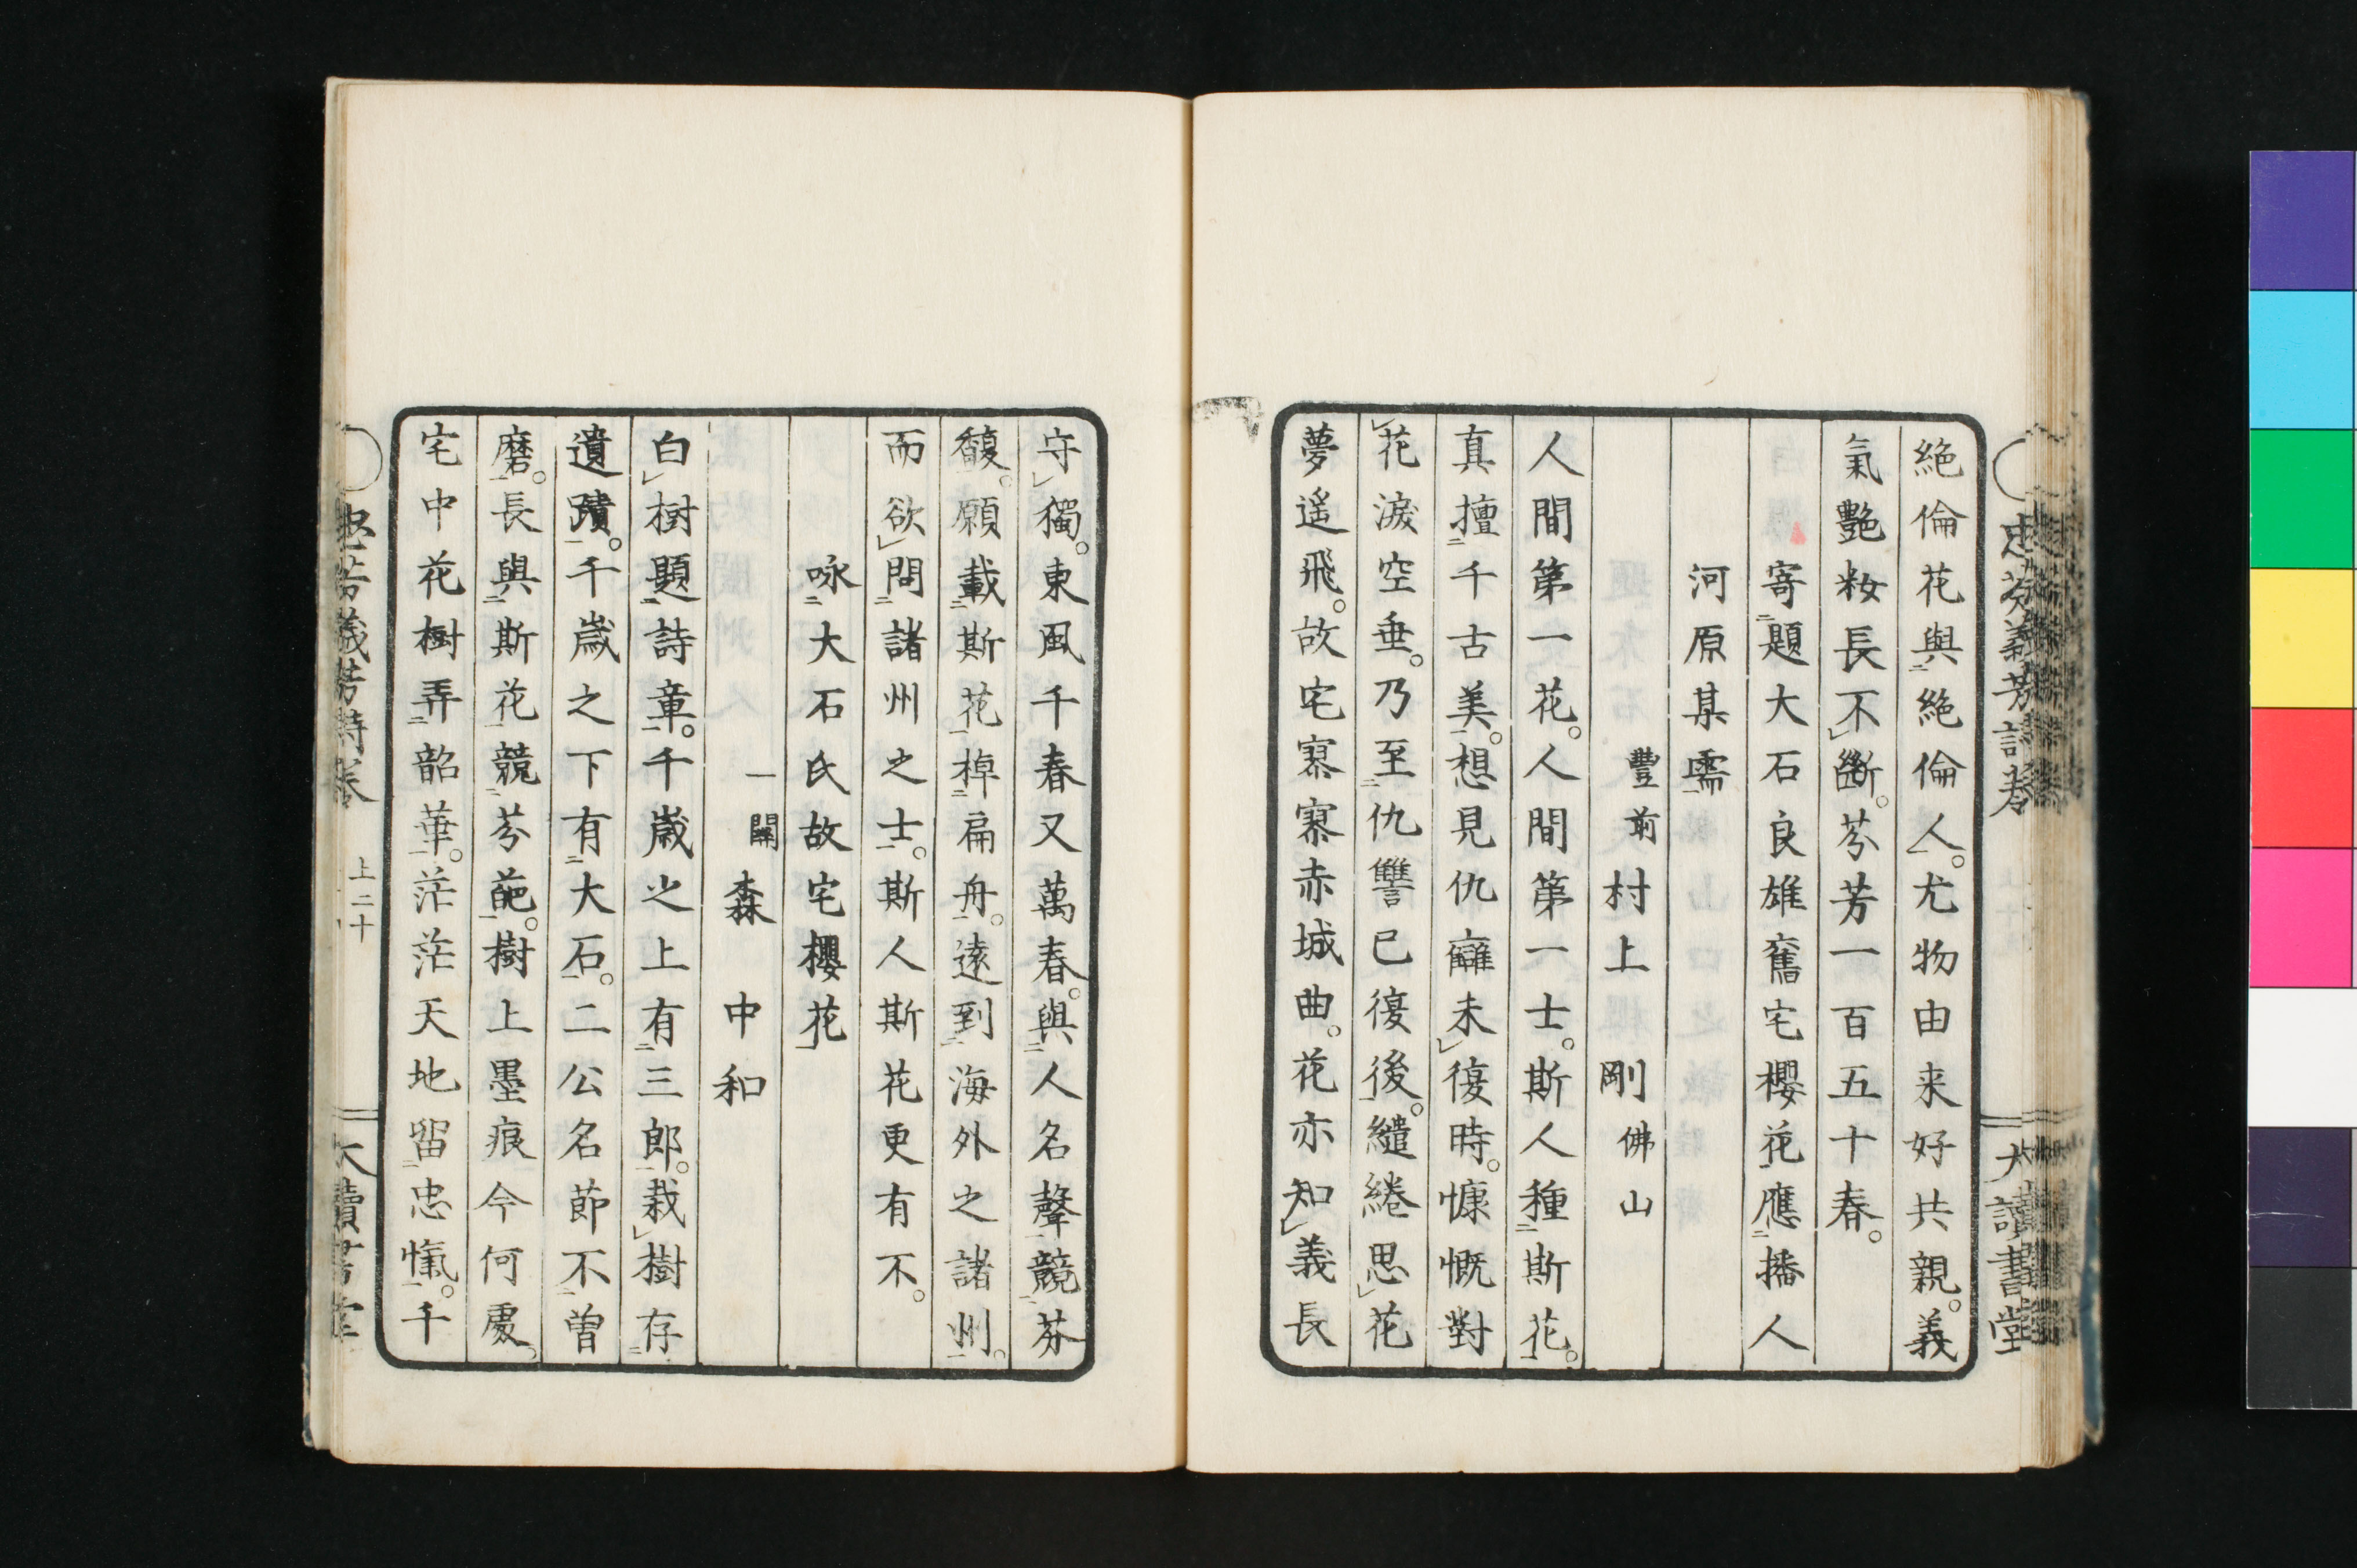 絶倫花與絶倫人。尤物由来好共親。義
氣艷粧長不斷。芬芳一百五十春。
寄題大石良雄舊宅櫻花應播人
河原某需
豐前村上剛佛山
人間第一花。人間第一士。斯人種斯花。
真擅千古美。想見仇讎未復時。慷慨對
花淚空垂。乃至仇讐已復後。繾綣思花
夢遥飛。故宅寡寡赤城曲。花亦知義長
守獨。東風千春又萬春。與人名聲競芬
馥。願載斯花棹扁舟。遠到海外之諸州。
而欲問諸州之士。斯人斯花更有不。
咏大石氏故宅櫻花
一關森中和
白樹題詩章。千歳之上有三郎。栽樹存
遺蹟。千歳之下有大石。二公名節不曽
磨。長與斯花競芬葩。樹上墨痕今何處。
宅中花樹弄韶華。茫茫天地留忠愾。千
忠芬義芳詩巻
大讀書堂
上二十